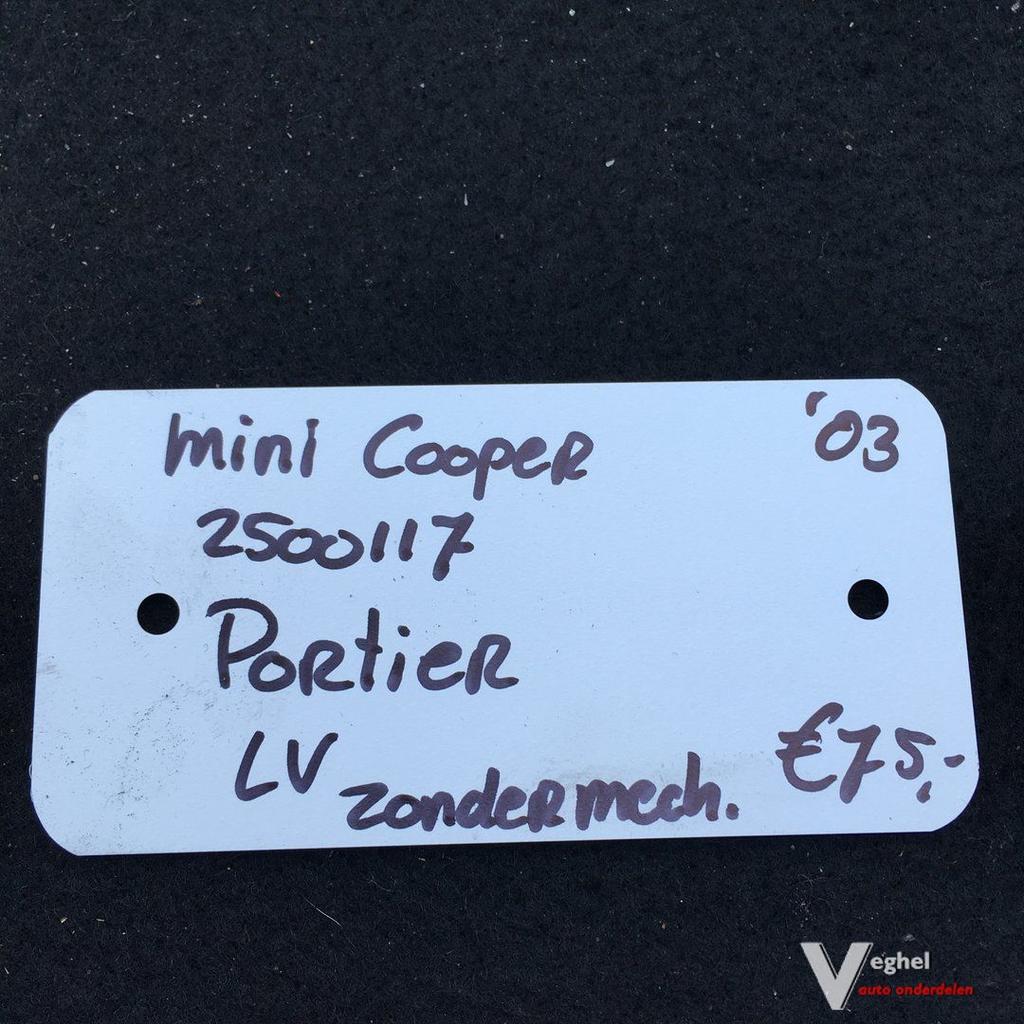 mini Cooper '03
2500117
Portier
LV zonder mech. €75,-
Veghel
auto onderdelen